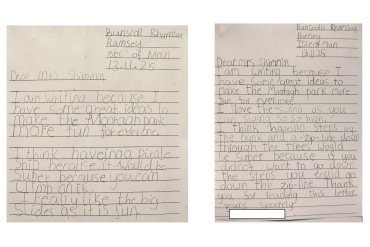 Bunscoill Rhumsaa
Ramsey
Isle of Man
13.11.25
Dear Mrs Shimmin
I am writing because I
have some great ideas to
make the Mooragh park
more fun for everyone.
I think haveing a Pirate
Ship because it would be
Super because you can
Climb on it.
I really like the big
Slides as it is fun
Bunscoill Rhumsaa
Ramsey
Isle of Man
13.11.25
Dear mrs shimmin
I am writing because I
have some great ideas to
make the Mooragh park more
fun for everyone.
I love the as you
can swing so so high.
I think having steps up
the bank and a zip-line down
through the trees would
be super because if you
dident want to go down
the steps you could go
down the zip-line. Thank
you for reading this letter.
Yours sincerely